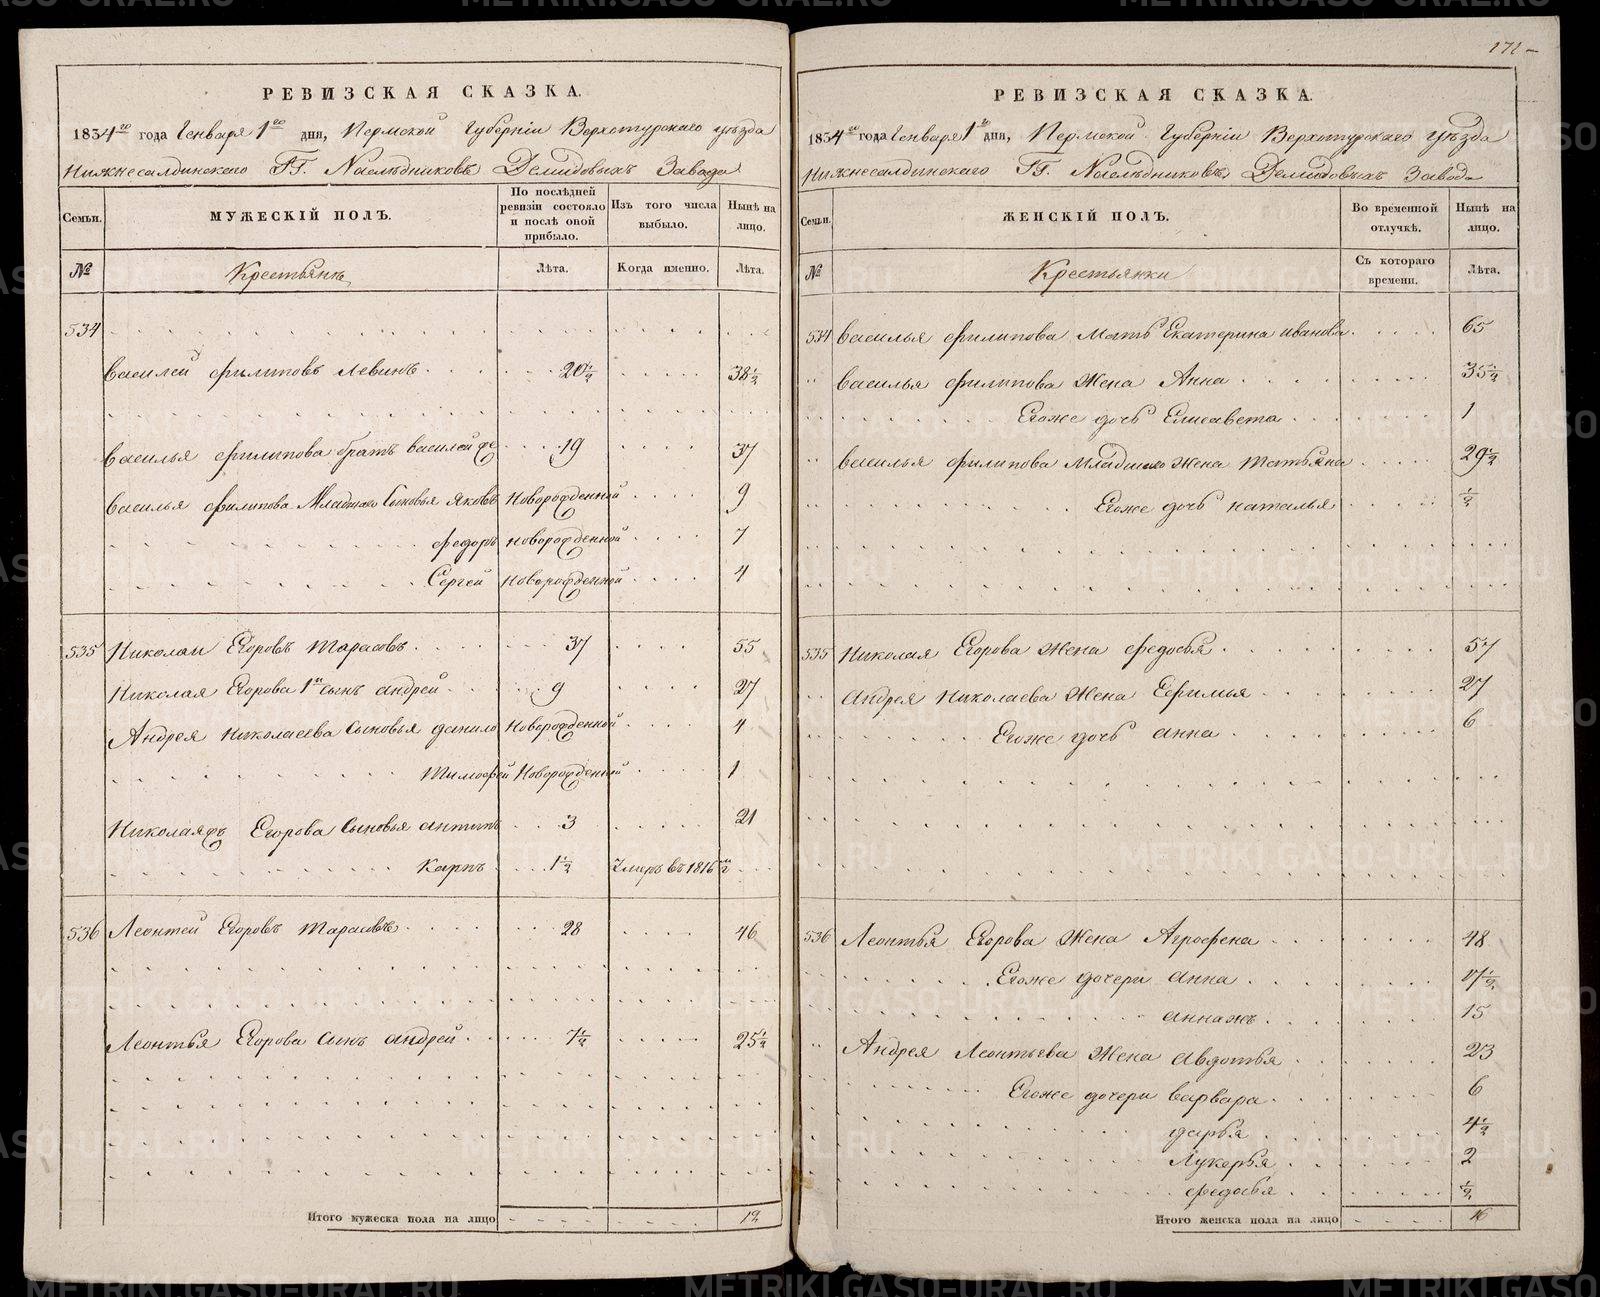 РЕВИЗСКАЯ СКАЗКА.
1834го года Генваря 1го дня, Пермской Губерніи Верхотурскаго уѣзда
Нижнесалдинскаго ГГ. Наслѣдниковъ Демидовыхъ Завода
Семьи. МУЖЕСКІЙ ПОЛЪ. По послѣдней ревизіи состояло и послѣ оной прибыло. Изъ того числа выбыло. Нынѣ на лицо.
№ Крестьянъ Лѣта. Когда именно. Лѣта.
534
Василей Филиповъ Левинъ 20½ 38½
Василья Филипова братъ Василей же 19 37
Василья Филипова Младшаго Сыновья Яковъ Новорожденной 9
Федоръ Новорожденной 7
Сергей Новорожденной 4
535 Николай Егоровъ Тарасовъ 37 55
Николая Егорова 1й сынъ Андрей 9 27
Андрея Николаева Сыновья Данило Новорожденной 4
Тимофей Новорожденной 1
Николаяжъ Егорова Сыновья Антипъ 3 21
Карпъ 1½ Умеръ въ 1816м
536 Леонтей Егоровъ Тарасовъ 28 46
Леонтья Егорова Сынъ Андрей 7½ 25½
Итого мужеска пола на лицо 12
171
РЕВИЗСКАЯ СКАЗКА.
1834го года Генваря 1го дня, Пермской Губерніи Верхотурскаго уѣзда
Нижнесалдинскаго ГГ. Наслѣдниковъ Демидовыхъ Завода
Семьи. ЖЕНСКІЙ ПОЛЪ. Во временной отлучкѣ. Нынѣ на лицо.
№ Крестьянки Съ котораго времени. Лѣта.
534 Василья Филипова Мать Екатерина Иванова 65
Василья Филипова Жена Анна 35½
Егоже дочь Елисавета 1
Василья Филипова Младшаго Жена Татьяна 29½
Егоже дочь Наталья ½
535 Николая Егорова Жена Федосья 57
Андрея Николаева Жена Ефимья 27
Егоже дочь Анна 6
536 Леонтья Егорова Жена Агрофена 48
Егоже дочери Анна 17½
Аннажъ 15
Андрея Леонтьева Жена Авдотья 23
Егоже дочери Варвара 6
Дарья 4½
Лукерья 2
Федосья ½
Итого женска пола на лицо 16
METRIKI.GASO-URAL.RU